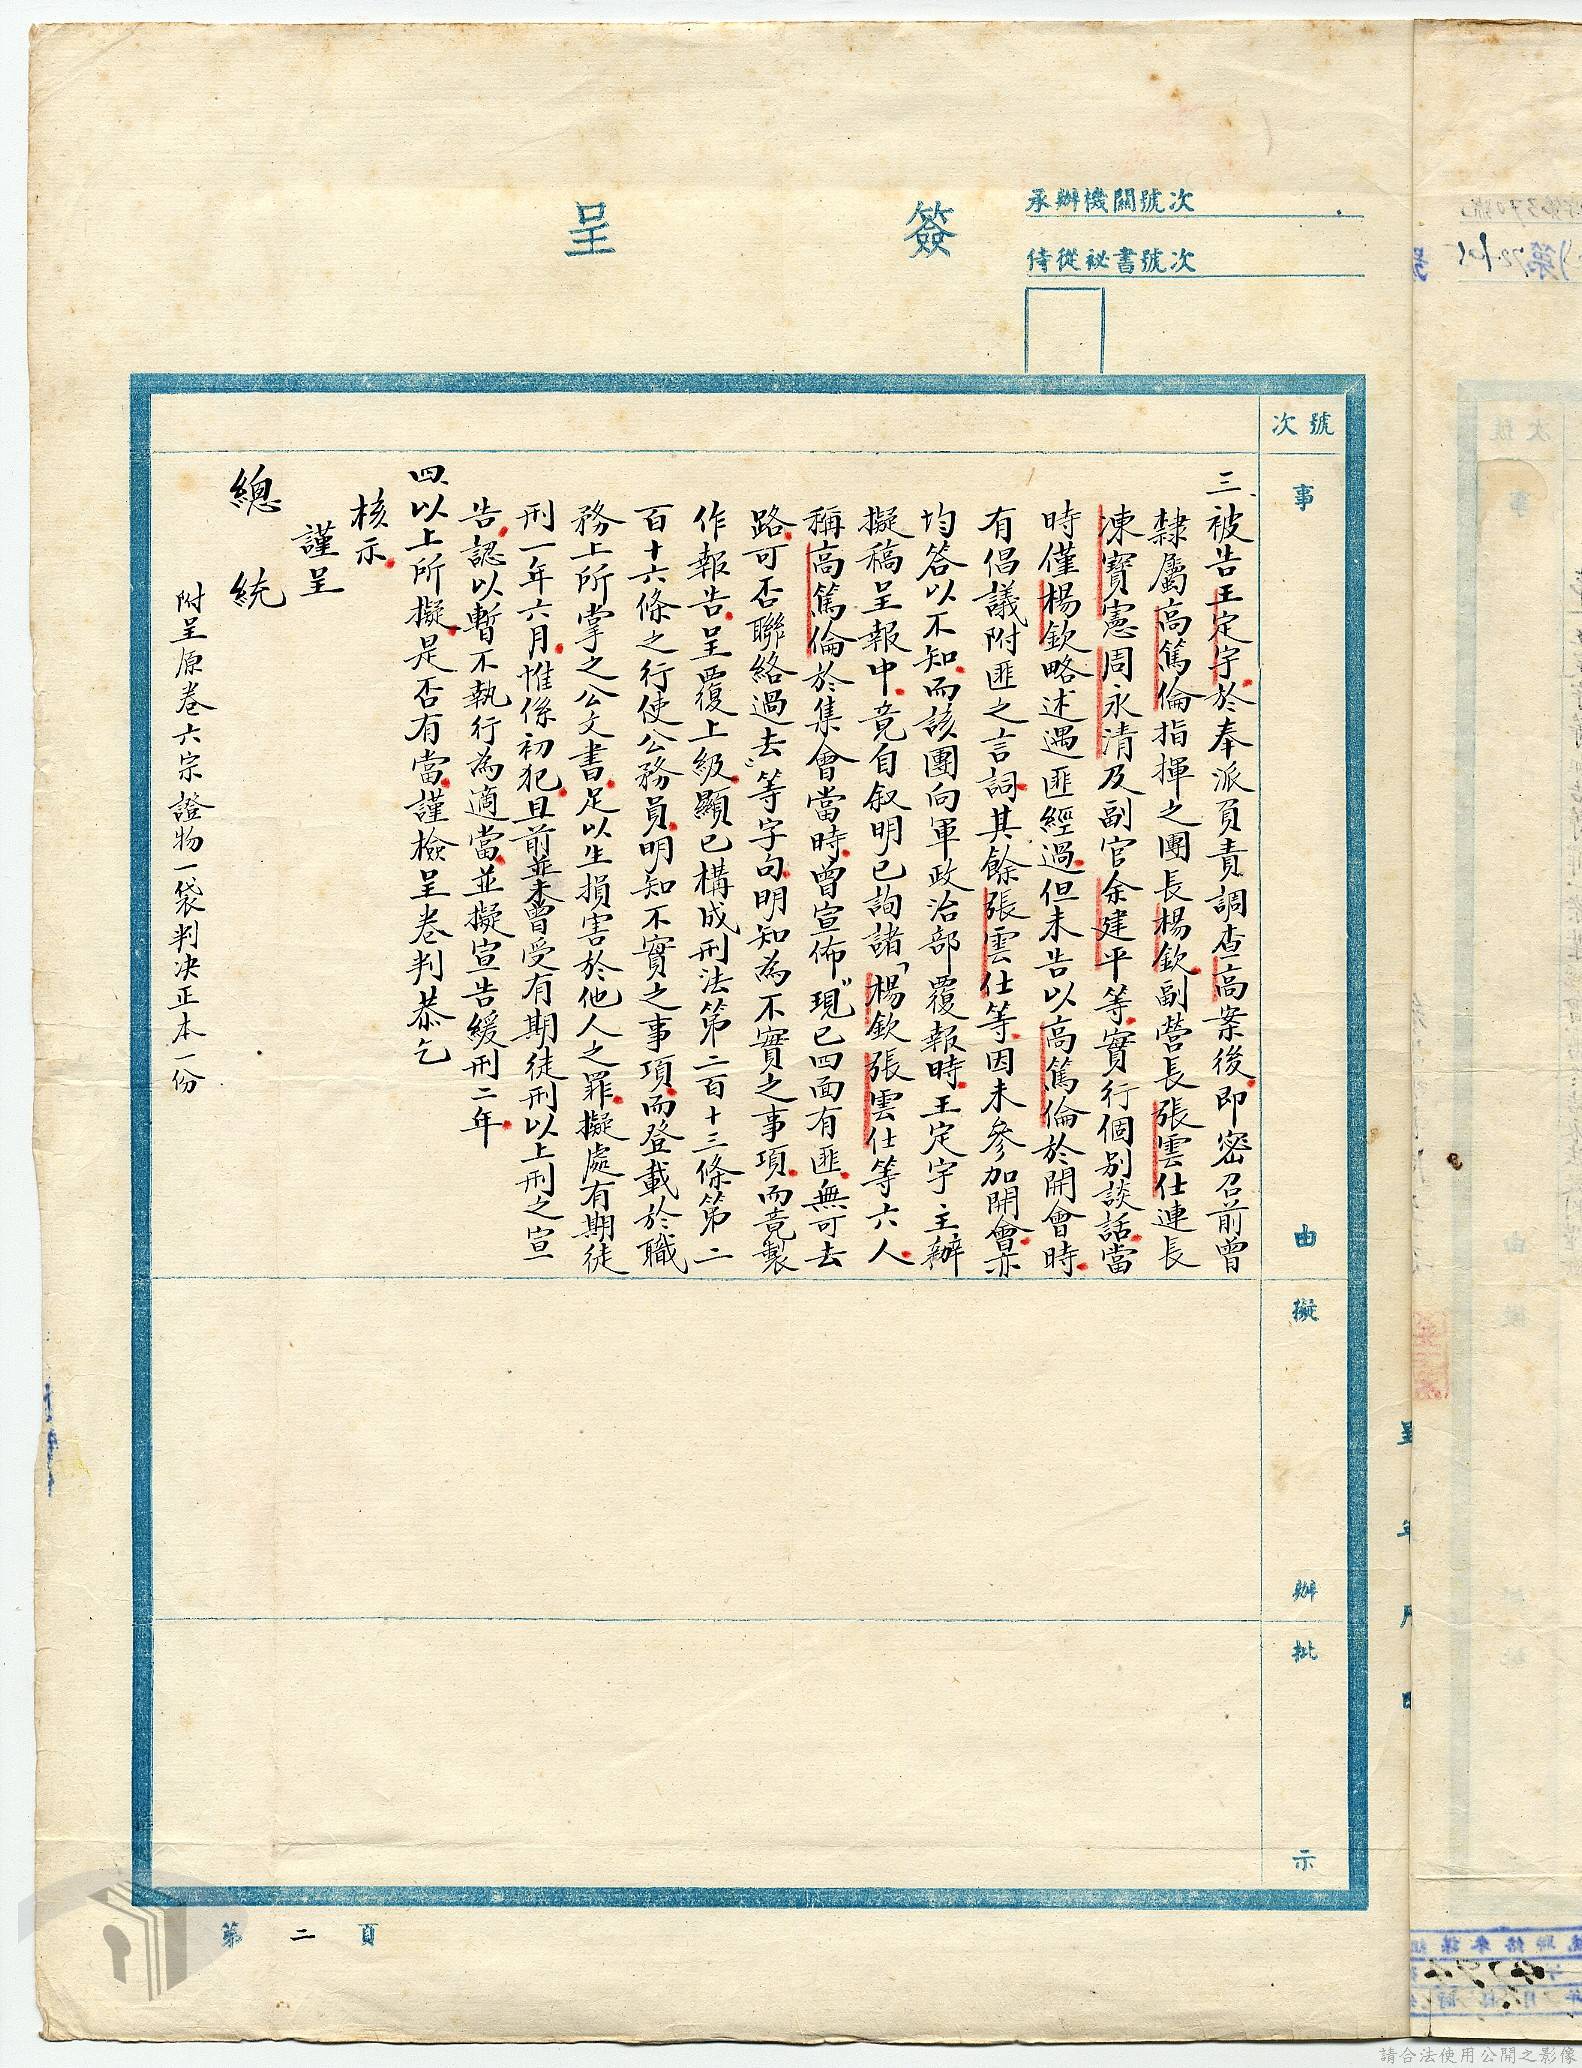 簽呈
承辦機關號次
侍從祕書號次
號次
事由
擬辦
批示
三、被告王定宇於奉派負責調查高案後即密召前曾
隸屬高篤倫指揮之團長楊欽副營長張雲仕連長
凍寶憲周永清及副官余建平等實行個別談話當
時僅楊欽略述遇匪經過但未告以高篤倫於開會時
有倡議附匪之言詞其餘張雲仕等因未參加開會亦
均答以不知而該團向軍政治部覆報時王定宇主辦
擬稿呈報中竟自叙明已詢諸「楊欽張雲仕等六人
稱高篤倫於集會當時曾宣佈"現已四面有匪無可去
路可否聯絡過去"等字句明知為不實之事項而竟製
作報告呈覆上級顯已構成刑法第二百十三條第二
百十六條之行使公務員明知不實之事項而登載於職
務上所掌之公文書足以生損害於他人之罪擬處有期徒
刑一年六月惟係初犯且前並未曾受有期徒刑以上刑之宣
告認以暫不執行為適當並擬宣告緩刑二年
四、以上所擬是否有當謹檢呈卷判恭乞
核示
謹呈
總統
附呈原卷六宗證物一袋判決正本一份
第二頁
請合法使用公開之影像